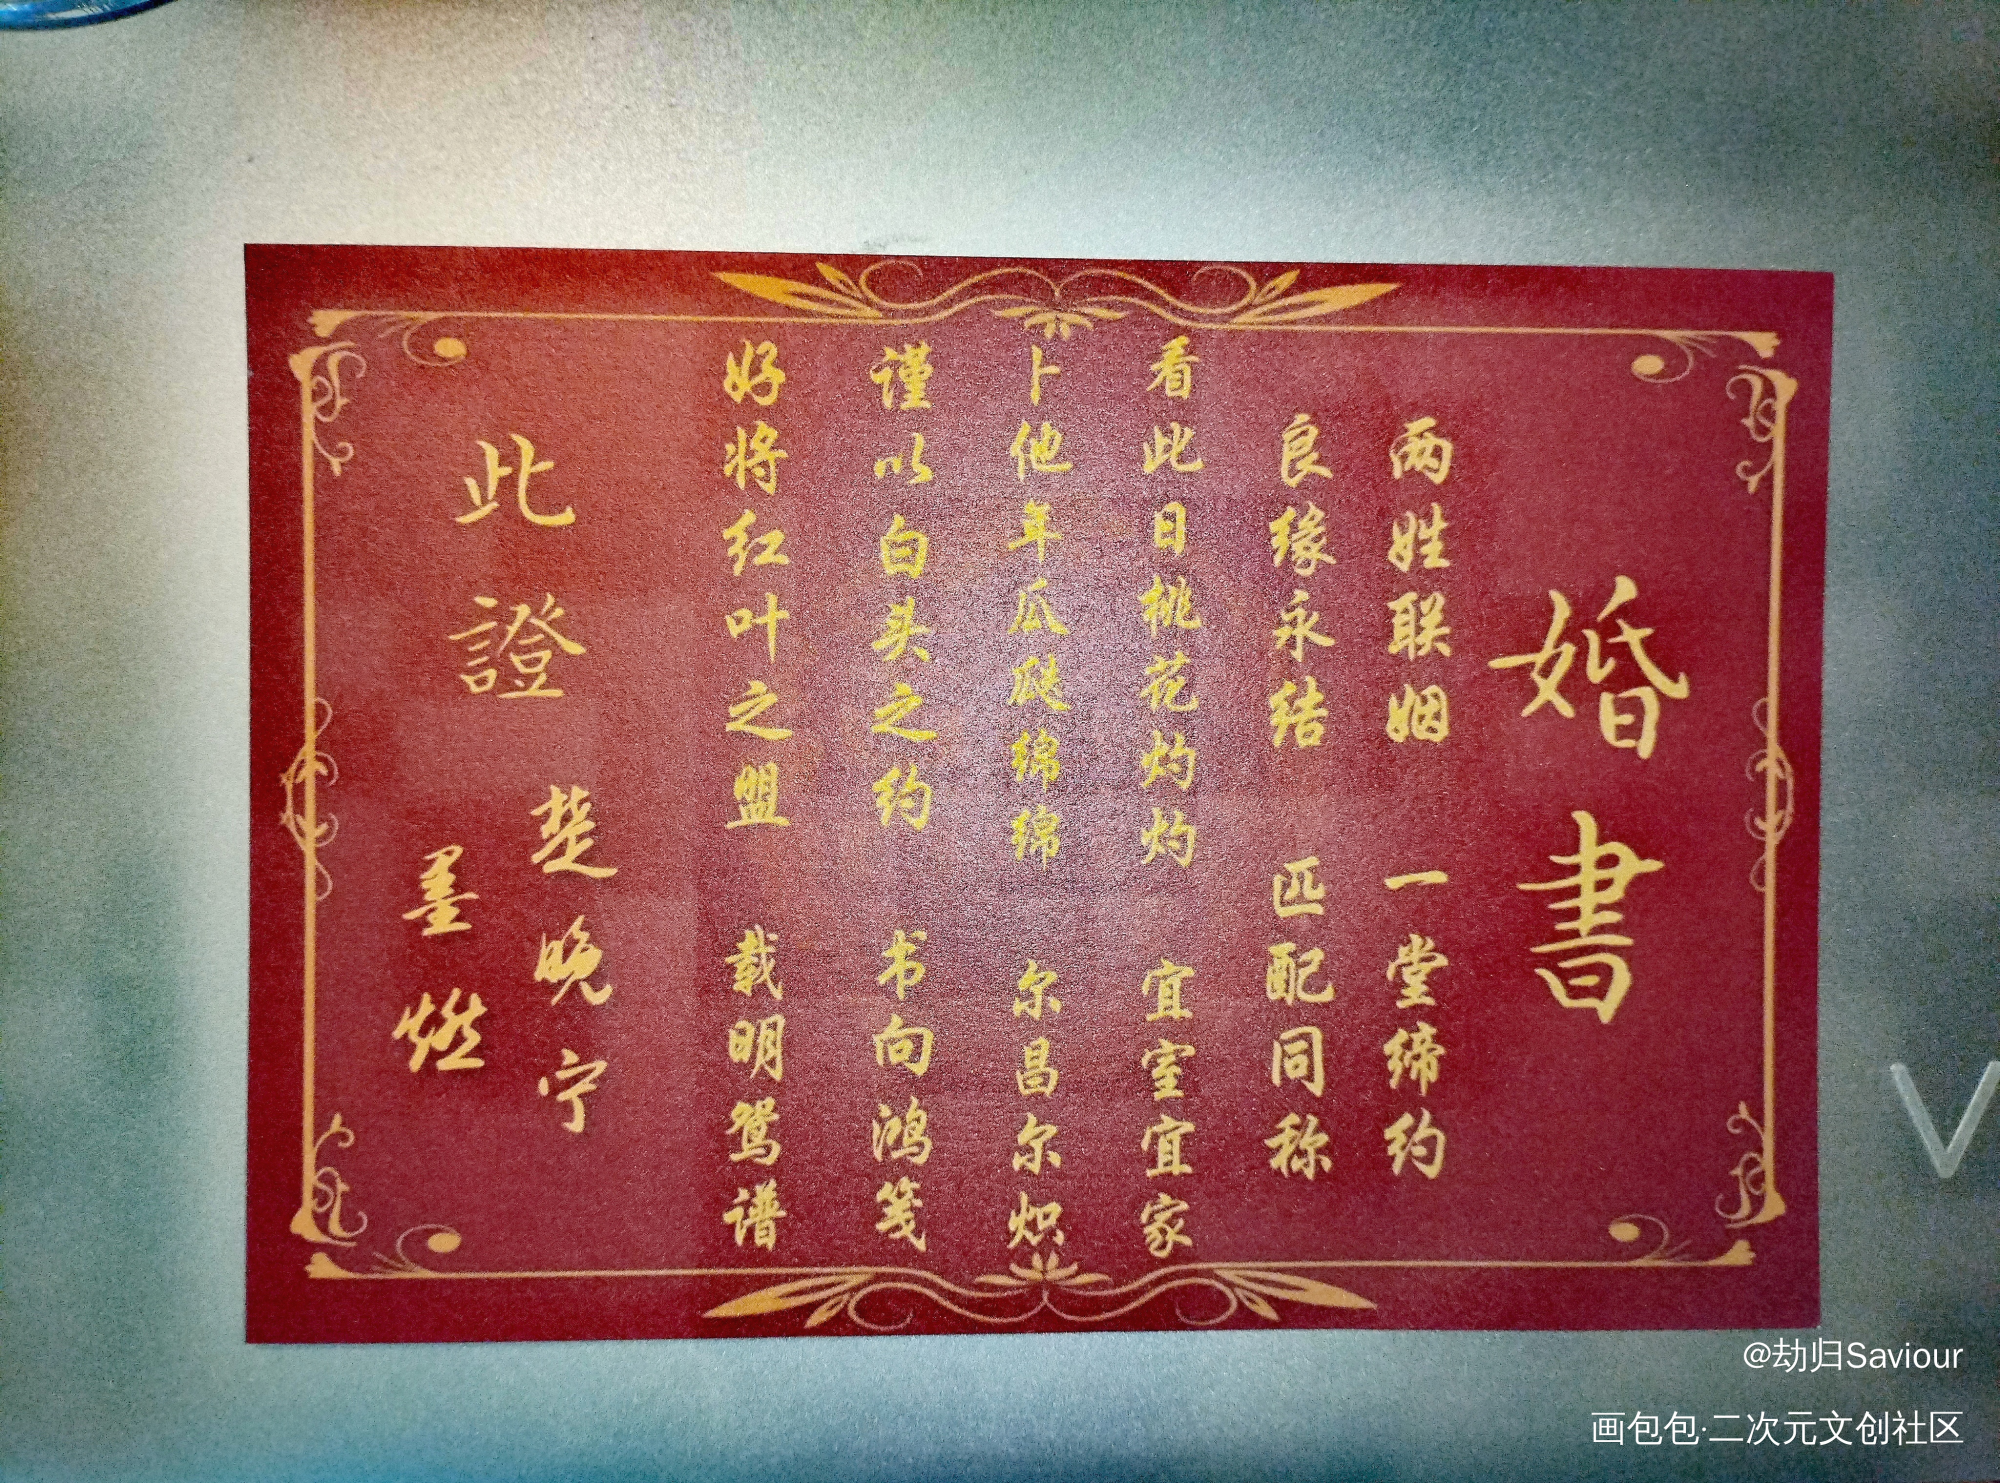 婚書
两姓联姻 一堂缔约
良缘永结 匹配同称
看此日桃花灼灼 宜室宜家
卜他年瓜瓞绵绵 尔昌尔炽
谨以白头之约 书向鸿笺
好将红叶之盟 载明鸳谱
此證
楚晚宁
墨燃
@劫归Saviour
画包包·二次元文创社区